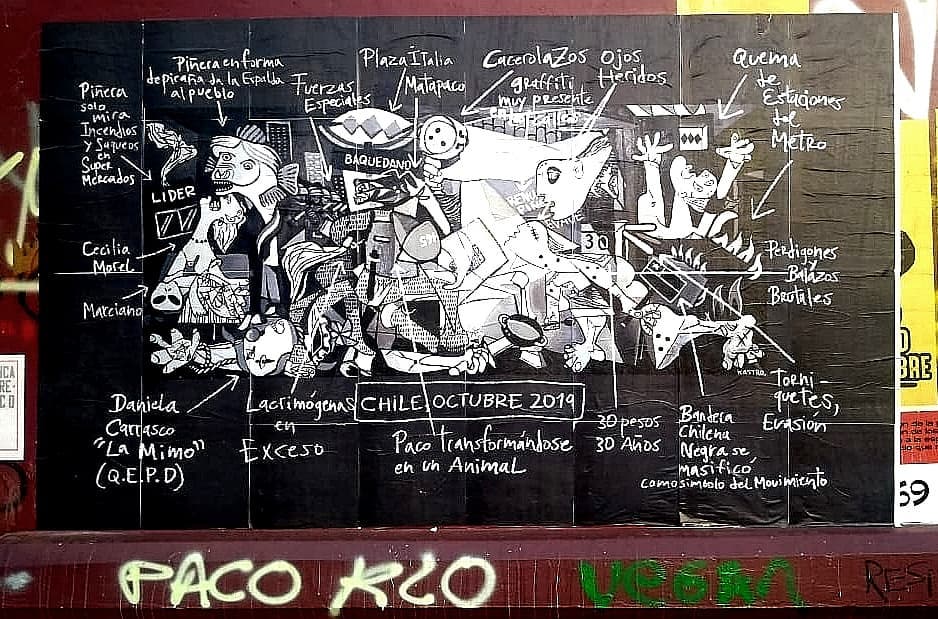 Piñera
solo
mira
Incendios
y Saqueos
en
Super
Mercados
Piñera en forma
de piraña da la Espalda
al pueblo
Fuerzas
Especiales
Plaza Italia
Matapaco
Cacerolazos
graffiti
muy presente
Ojos
Heridos
Quema
de
Estaciones
del
Metro
LIDER
BAQUEDANO
30
Cecilia
Morel
Marciano
Perdigones
Balazos
Brutales
Daniela
Carrasco
"La Mimo"
(Q.E.P.D)
Lacrimógenas
en
Exceso
CHILE, OCTUBRE 2019
Paco transformándose
en un Animal
30 pesos
30 Años
Bandera
Chilena
Negra se
masificó
como simbolo del Movimiento
Torni-
quetes,
Evasión
PACO KLO
VEGAN
RESi
69